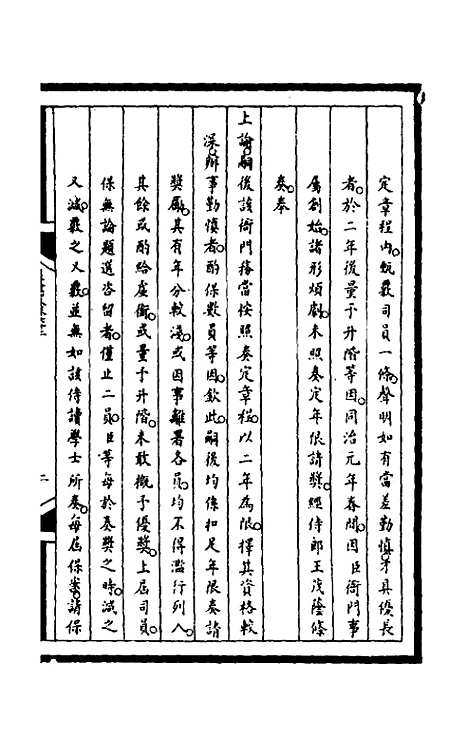 定章程內甄敘司員一條聲明如有當差勤慎才具優長
者於二年後量予升階等因同治元年春間因臣衙門事
屬創始諸形煩劇未照奏定年限請獎經侍郎王茂蔭條
奏奉
上諭嗣後該衙門務當按照奏定章程以二年為限擇其資格較
深辦事勤慎者酌保數員等因欽此嗣後均係扣足年限奏請
獎勵其有年分較淺或因事離署各員均不得濫行列入
其餘或酌給虛銜或量予升階未敢概予優獎上屆司員
保無論題選咨留者僅止二員臣等每於奏獎之時減之
又減覈之又覈並無如該侍讀學士所奏每屆保案請保